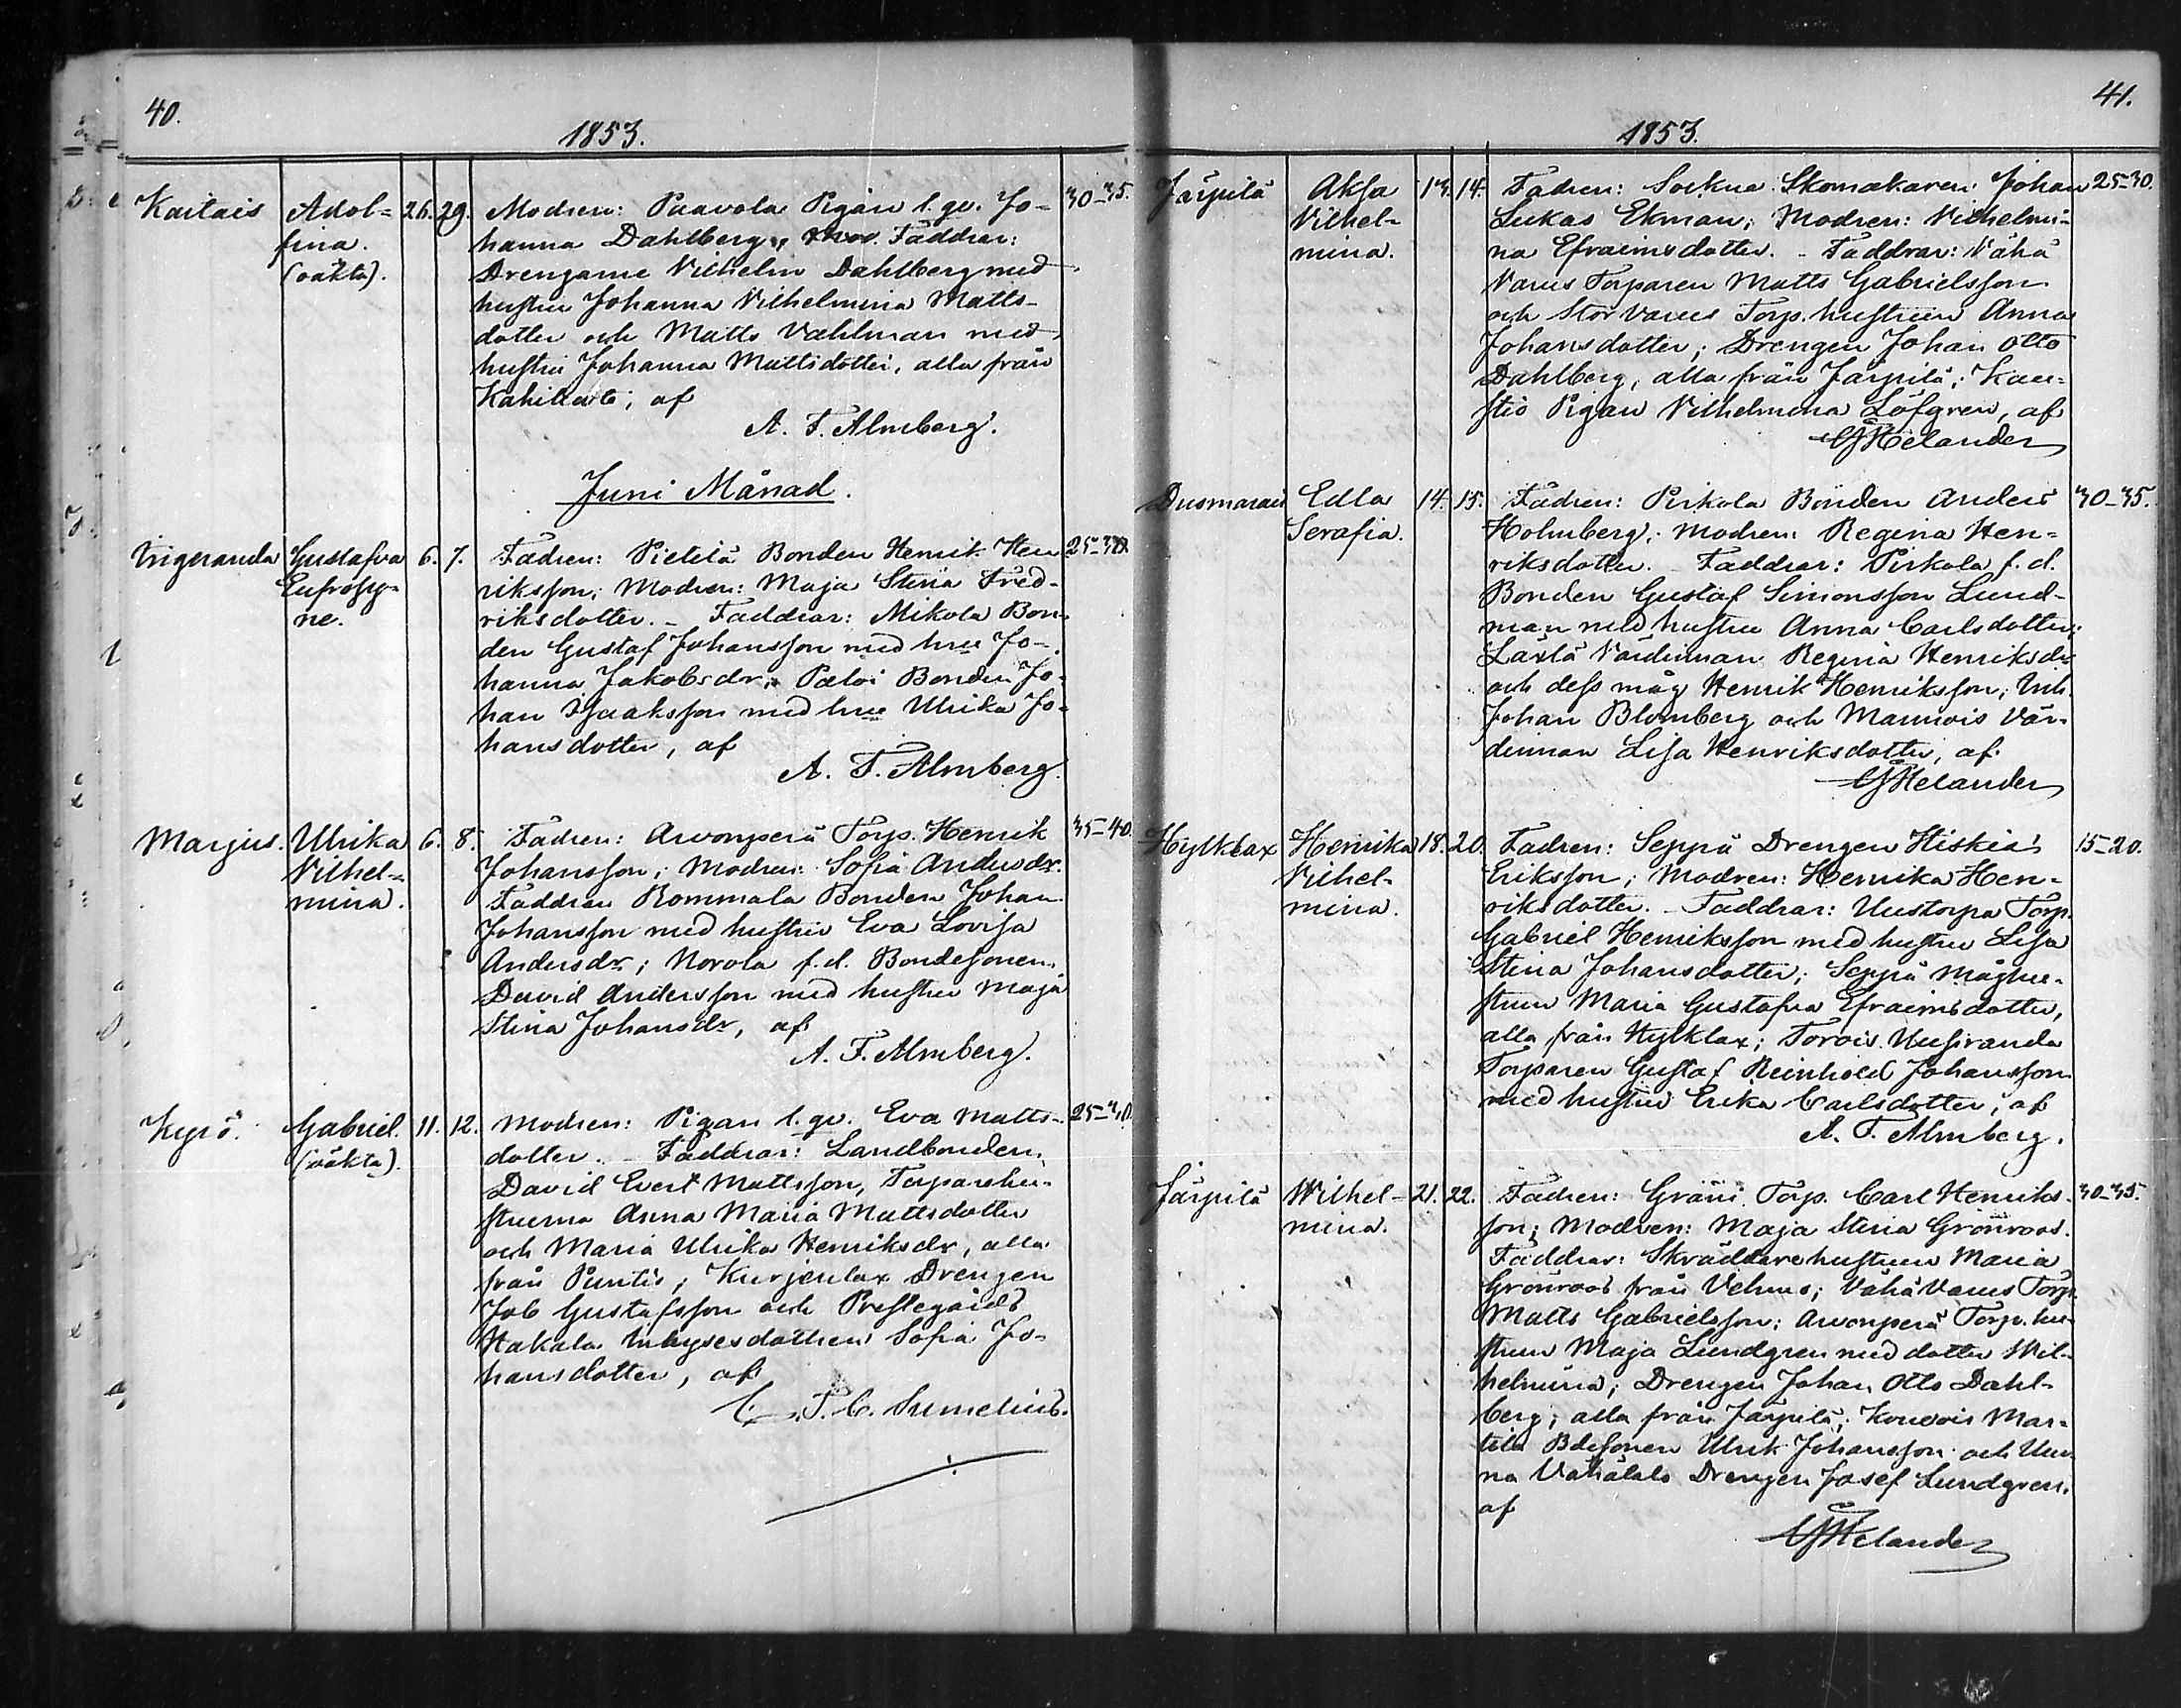 40.
1853.
Kailais Adol- 26. 29. Modren: Paavola Pigan l. qv. Jo- 30-35.
fina. hanna Dahlberg; Faddrar:
(oäkta). Drengarne Vilhelm Dahlberg med
hustru Johanna Vilhelmina Matts-
dotter och Matts Vahlman med
hustru Johanna Mattsdotter, alla från
af
A. F. Almberg.
Juni Månad.
Gustafva 6. 7. Fadren: Pietilä Bonden Henrik Hen 25-30
Eufrosy- riksson; Modren: Maja Stina Fred-
ne. riksdotter. - Faddrar: Mikola Bon-
den Gustaf Johansson med hru Jo-
hanna Jakobsdr; Paloi Bonden Jo-
han Isaaksson med hru Ulrika Jo-
hansdotter, af
A. F. Almberg.
Marjus. Ulrika 6. 8. Fadren: Arvonperä Torp. Henrik 35-40.
Vilhel- Johansson; Modren: Sofia Andersdr.
mina. Faddrar Rommala Bonden Johan
Johansson med hustru Eva Lovisa
Andersdr; Norola f.d. Bondesonen
David Andersson med hustru Maja
Stina Johansdr, af
A. F. Almberg.
Kyrö. Gabriel. 11. 12. Modren: Pigan l. qv. Eva Matts- 25-30.
(oäkta). dotter. - Faddrar: Landbonden
David Evert Mattsson, Torparehu-
struerna Anna Maria Mattsdotter
och Maria Ulrika Henriksdr, alla
från Puntis; Kurjenlax Drengen
Job Gustafsson och Prestegårds
Hakala Inhysesdottren Sofia Jo-
hansdotter, af
Sumelius.
41.
1853.
Järpilä Aksa 13. 14. Fadren: Sockne Skomakaren Johan 25-30.
Vilhel- Lukas Ekman; Modren: Vilhelmi-
mina. na Efraimsdotter. - Faddrar: Vähä
Varus Torparen Matts Gabrielsson
och Stor Varus Torp. hustrun Anna
Johansdotter; Drengen Johan Otto
Dahlberg, alla från Järpilä; Kau-
stio Pigan Vilhelmina Löfgren, af
Helander
Dusmarais Edla 14. 15. Fadren: Pirkola Bonden Anders 30-35.
Serafia. Holmberg; Modren: Regina Hen-
riksdotter. - Faddrar: Pirkola f. d.
Bonden Gustaf Simonsson Lund-
man med hustru Anna Carlsdotter;
Laxlä Värdinnan Regina Henriksdr
och dess måg Henrik Henriksson; Inh.
Johan Blomberg och Mannois Vär-
dinnan Lisa Henriksdotter, af
Helander
Hylklax Henrika 18. 20. Fadren: Seppä Drengen Hiskias 15-20.
Vilhel- Eriksson; Modren: Henrika Hen-
mina. riksdotter. - Faddrar: Uustorpa Torp.
Gabriel Henriksson med hustru Lisa
Stina Johansdotter; Seppä måghu-
strun Maria Gustafva Efraimsdotter,
alla från Hylklax; Torois Uusiranda
Torparen Gustaf Reinhold Johansson
med hustru Erika Carlsdotter, af
A. F. Almberg.
Järpilä Wilhel- 21. 22. Fadren: Gräni Torp. Carl Henriks- 30-35.
mina. son; Modren: Maja Stina Grönroos.
Faddrar: Skräddarehustrun Maria
Grönroos från Vehmo; Vähä Varus Torp.
Matts Gabrielsson; Arvonperä Torp. hu-
strun Maja Lundgren med dotter Wil-
helmina; Drengen Johan Otto Dahl-
berg, alla från Järpilä; Kouvois Mar-
tila Bdesonen Ulrik Johansson och Uun-
na Vähätalo Drengen Josef Lundgren,
af
Helander